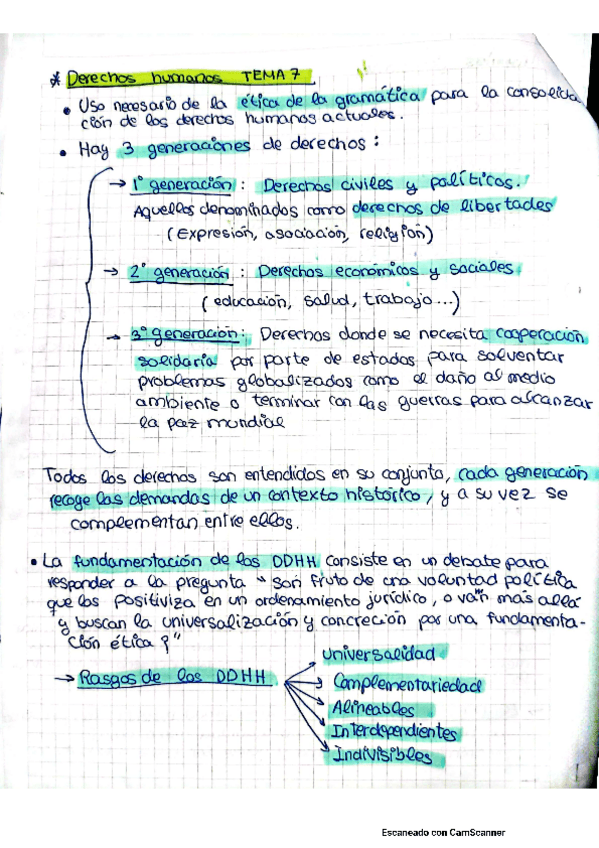 * Derechos humanos TEMA 7
• Uso necesario de la ética de la gramática para la consolida
ción de los derechos humanos actuales.
• Hay 3 generaciones de derechos :
→ 1º generación : Derechos civiles y políticos.
Aquellos denominados como derechos de libertades
(Expresión, asociación, religión)
→ 2º generación : Derechos económicos y sociales
(educación, salud, trabajo...)
→ 3º generación: Derechos donde se necesita cooperación
solidaria por parte de estados para solventar
problemas globalizados como el daño al medio
ambiente o terminar con las guerras para alcanzar
la paz mundial
Todos los derechos son entendidos en su conjunto, cada generación
recoge las demandas de un contexto histórico, y a su vez se
complementan entre ellos.
• La fundamentación de los DDHH consiste en un debate para
responder a la pregunta " son fruto de una voluntad política
que los positiviza en un ordenamiento jurídico, o van más allá
y buscan la universalización y concreción por una fundamenta-
ción ética ?"
→ Rasgos de los DDHH
universalidad
Complementariedad
Alineables
Interdependientes
Indivisibles
Escaneado con CamScanner